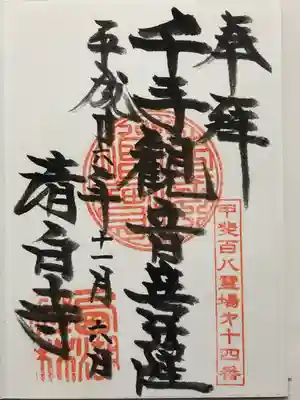 奉拝
甲斐百八靈場㐧十四番
千手観音菩薩
平成廿六年十一月六日
清白寺